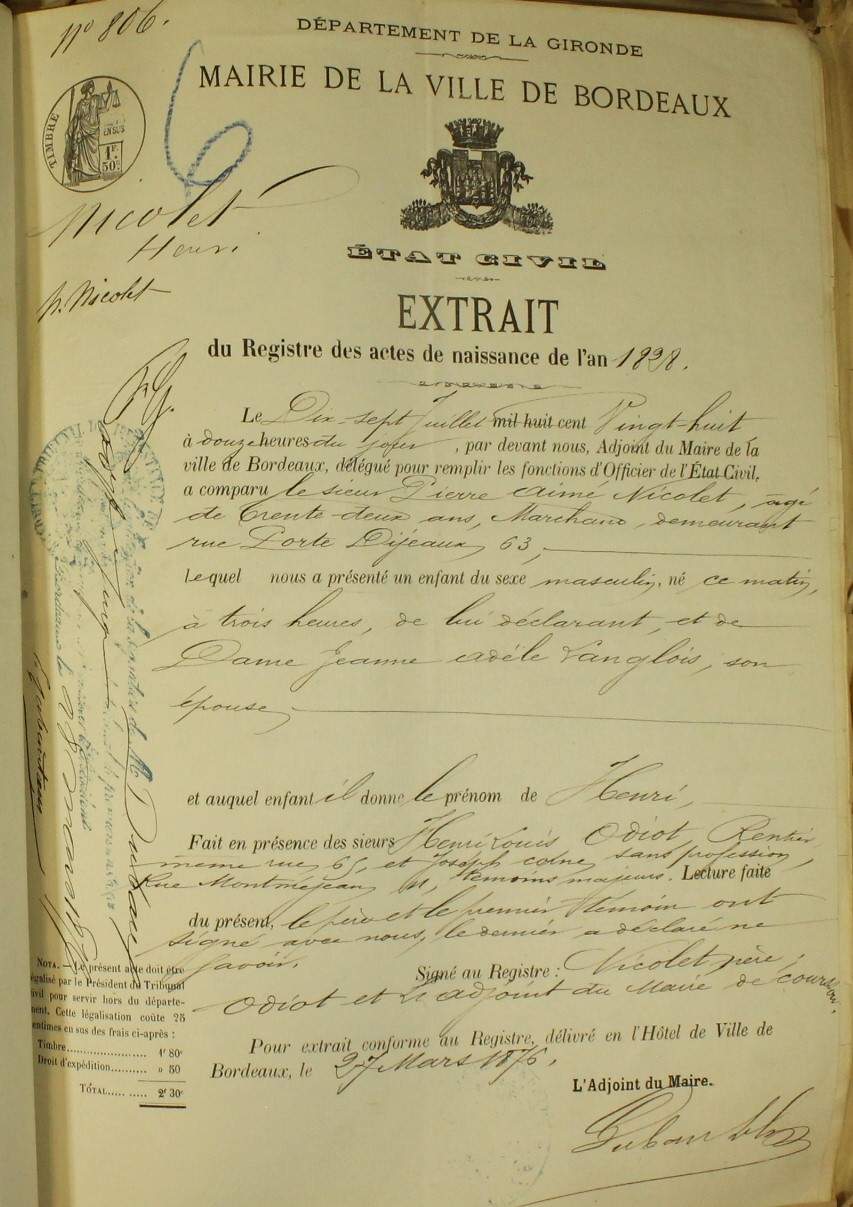 N° 806.
DÉPARTEMENT DE LA GIRONDE
MAIRIE DE LA VILLE DE BORDEAUX
TIMBRE
EN SUS
1F.
50c
6
Nicolet
Henri
p. Nicolet
ÉTAT CIVIL
EXTRAIT
du Registre des actes de naissance de l'an 1828.
Le Dix-sept Juillet mil huit cent Vingt-huit
à douze heures du jour, par devant nous, Adjoint du Maire de la
ville de Bordeaux, délégué pour remplir les fonctions d'Officier de l'État Civil,
a comparu le sieur Pierre Aimé Nicolet, agé
de Trente-deux ans, Marchand, demeurant
rue Porte Dijeaux, 63,
lequel nous a présenté un enfant du sexe masculin, né ce matin,
à trois heures, de lui déclarant, et de
Dame Jeanne Adèle Langlois, son
épouse,
et auquel enfant il donne le prénom de Henri,
Fait en présence des sieurs Henri Louis Odiot, Rentier
même rue 65, et Joseph sans profession,
Rue Montméjean 11, témoins majeurs. Lecture faite
du présent, le père et le premier témoin ont
signé avec nous, le dernier a déclaré ne
savoir.
Signé au Registre : Nicolet père,
Odiot et L'adjoint du Maire de Courson.
Pour extrait conforme au Registre, délivré en l'Hôtel de Ville de
Bordeaux, le 27 Mars 1876.
L'Adjoint du Maire.
NOTA. — Le présent acte doit être
légalisé par le Président du Tribunal
civil pour servir hors du départe-
ment. Cette légalisation coûte 25
centimes en sus des frais ci-après :
Timbre 1f 80c
Droit d'expédition » 50
TOTAL 2f 30c